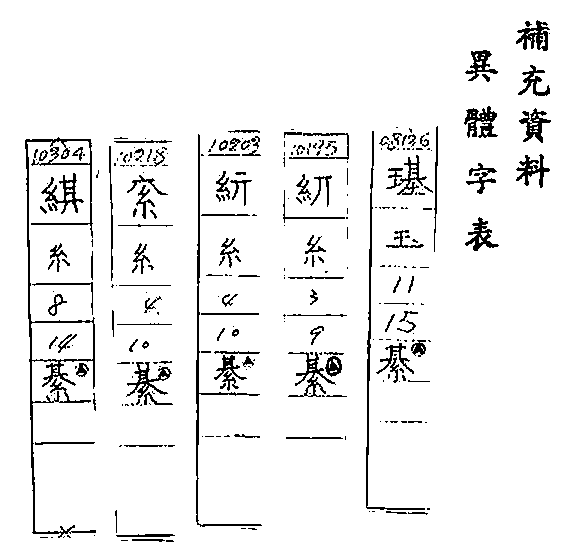 補充資料
異體字表
08136
璂
玉
11
15
綦Ⓐ
10195
糸
3
9
綦Ⓐ
10203
糸
4
10
綦Ⓐ
糸
4
10
綦Ⓐ
10304
綨
糸
8
14
綦Ⓐ